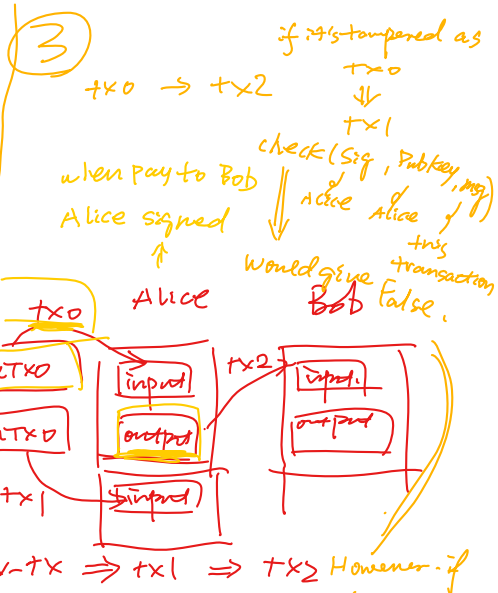 3
if it's tampered as
tx0
⇓
tx1
tx0 → tx2
check(Sig, Pubkey, msg)
Alice Alice this transaction
when pay to Bob
Alice signed
would give False.
tx0 Alice Bob
UTXO input tx2 input.
output output
UTXO input
tx1
-tx ⇒ tx1 ⇒ tx2 However. if